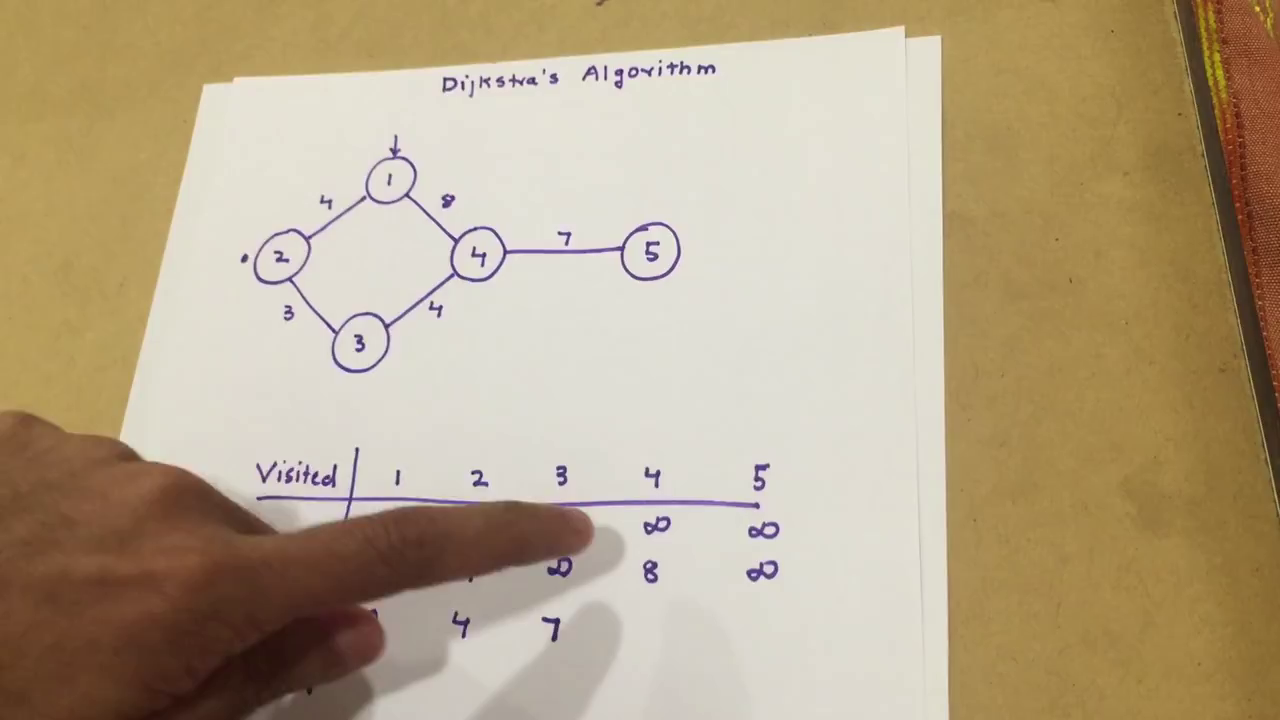 Dijkstra's Algorithm
1
4 8
2 4 7 5
3 4
3
Visited 1 2 3 4 5
∞ ∞
∞ 8 ∞
4 7